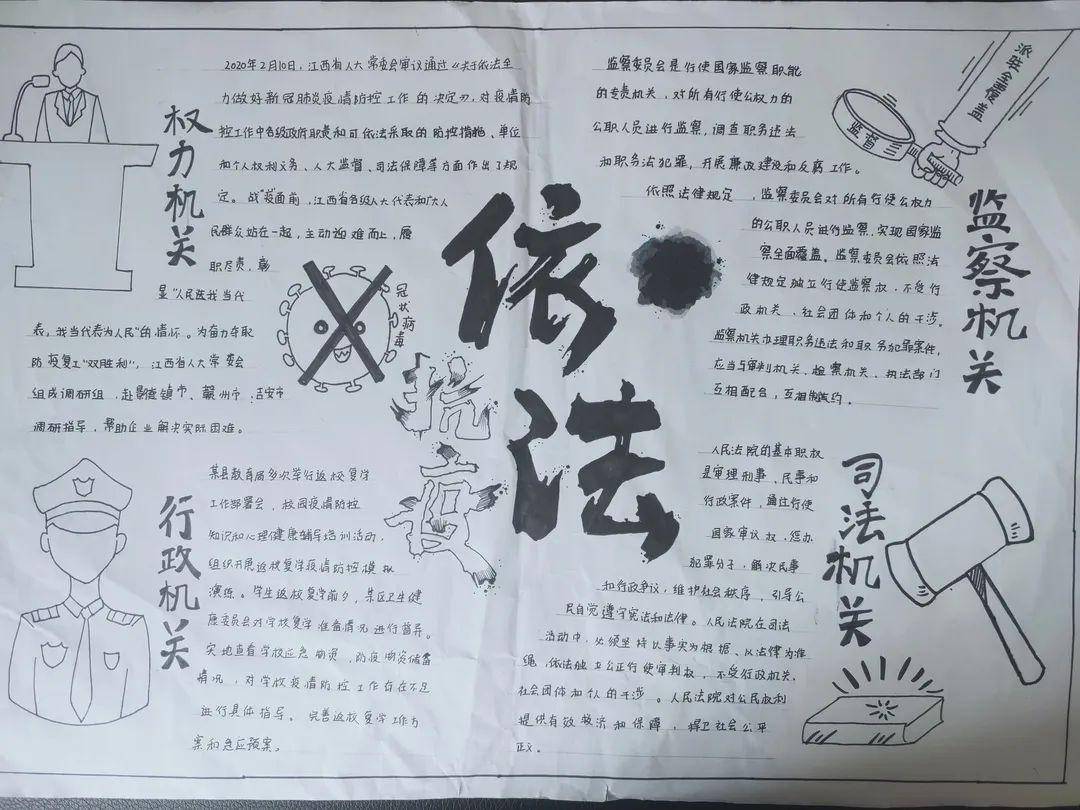 权力机关
2020年2月10日,江西省人大常委会审议通过《关于依法全
力做好新冠肺炎疫情防控工作的决定》,对疫情防
控工作中各级政府职责和可依法采取的防控措施、单位
和个人权利义务、人大监督、司法保障等方面作出了规
定。战“疫”面前,江西省各级人大代表和广大人
民群众站在一起,主动迎难而上,履
职尽责,彰
显“人民选我当代
表,我当代表为人民”的情怀。为奋力夺取
防疫复工“双胜利”,江西省人大常委会
组成调研组,赴景德镇市、赣州市、吉安市
调研指导,帮助企业解决实际困难。
冠状病毒
行政机关
某县教育局多次举行返校复学
工作部署会,校园疫情防控
知识和心理健康辅导培训活动,
组织开展返校复学疫情防控模拟
演练。学生返校复学前夕,某区卫生健
康委员会对学校复学准备情况进行督导。
实地查看学校应急物资,防疫物资储备
情况,对学校疫情防控工作存在不足
进行具体指导。完善返校复学工作方
案和急应预案。
依法
抗疫
监察委员会是行使国家监察职能
的专责机关,对所有行使公权力的
公职人员进行监察,调查职务违法
和职务法犯罪,开展廉政建设和反腐工作。
依照法律规定,监察委员会对所有行使公权力
的公职人员进行监察,实现国家监
察全面覆盖。监察委员会依照法
律规定独立行使监察权,不受行
政机关、社会团体和个人的干涉。
监察机关办理职务违法和职务犯罪案件,
应当与审判机关、检察机关、执法部门
互相配合,互相制约。
监督
派驻全覆盖
监察机关
人民法院的基本职权
是审理刑事、民事和
行政案件,通过行使
国家审议权,惩办
犯罪分子,解决民事
和行政争议,维护社会秩序,引导公
民自觉遵守宪法和法律。人民法院在司法
活动中,必须坚持以事实为根据、以法律为准
绳,依法独立公正行使审判权,不受行政机关、
社会团体和个人的干涉。人民法院对公民权利
提供有效救济和保障,捍卫社会公平
正义。
司法机关